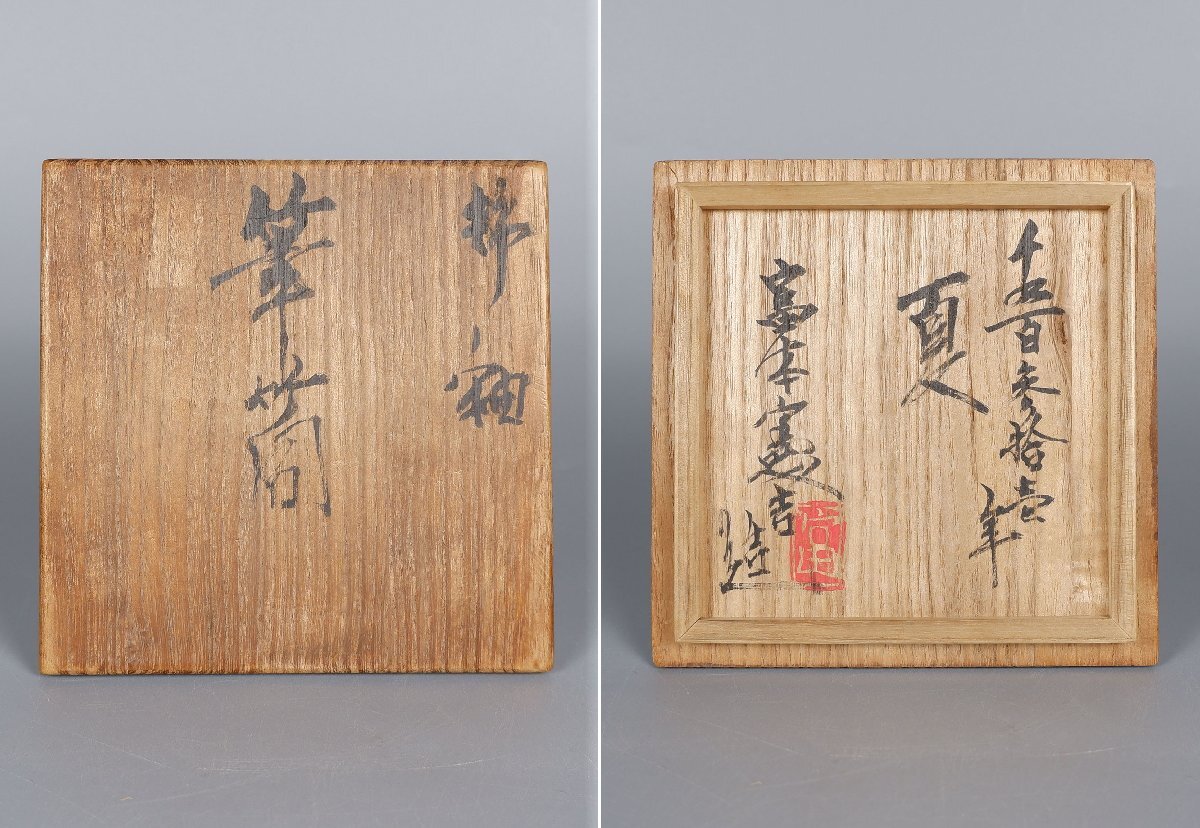 柿釉
筆筒
千九百参拾壱年
夏
富本憲吉
造